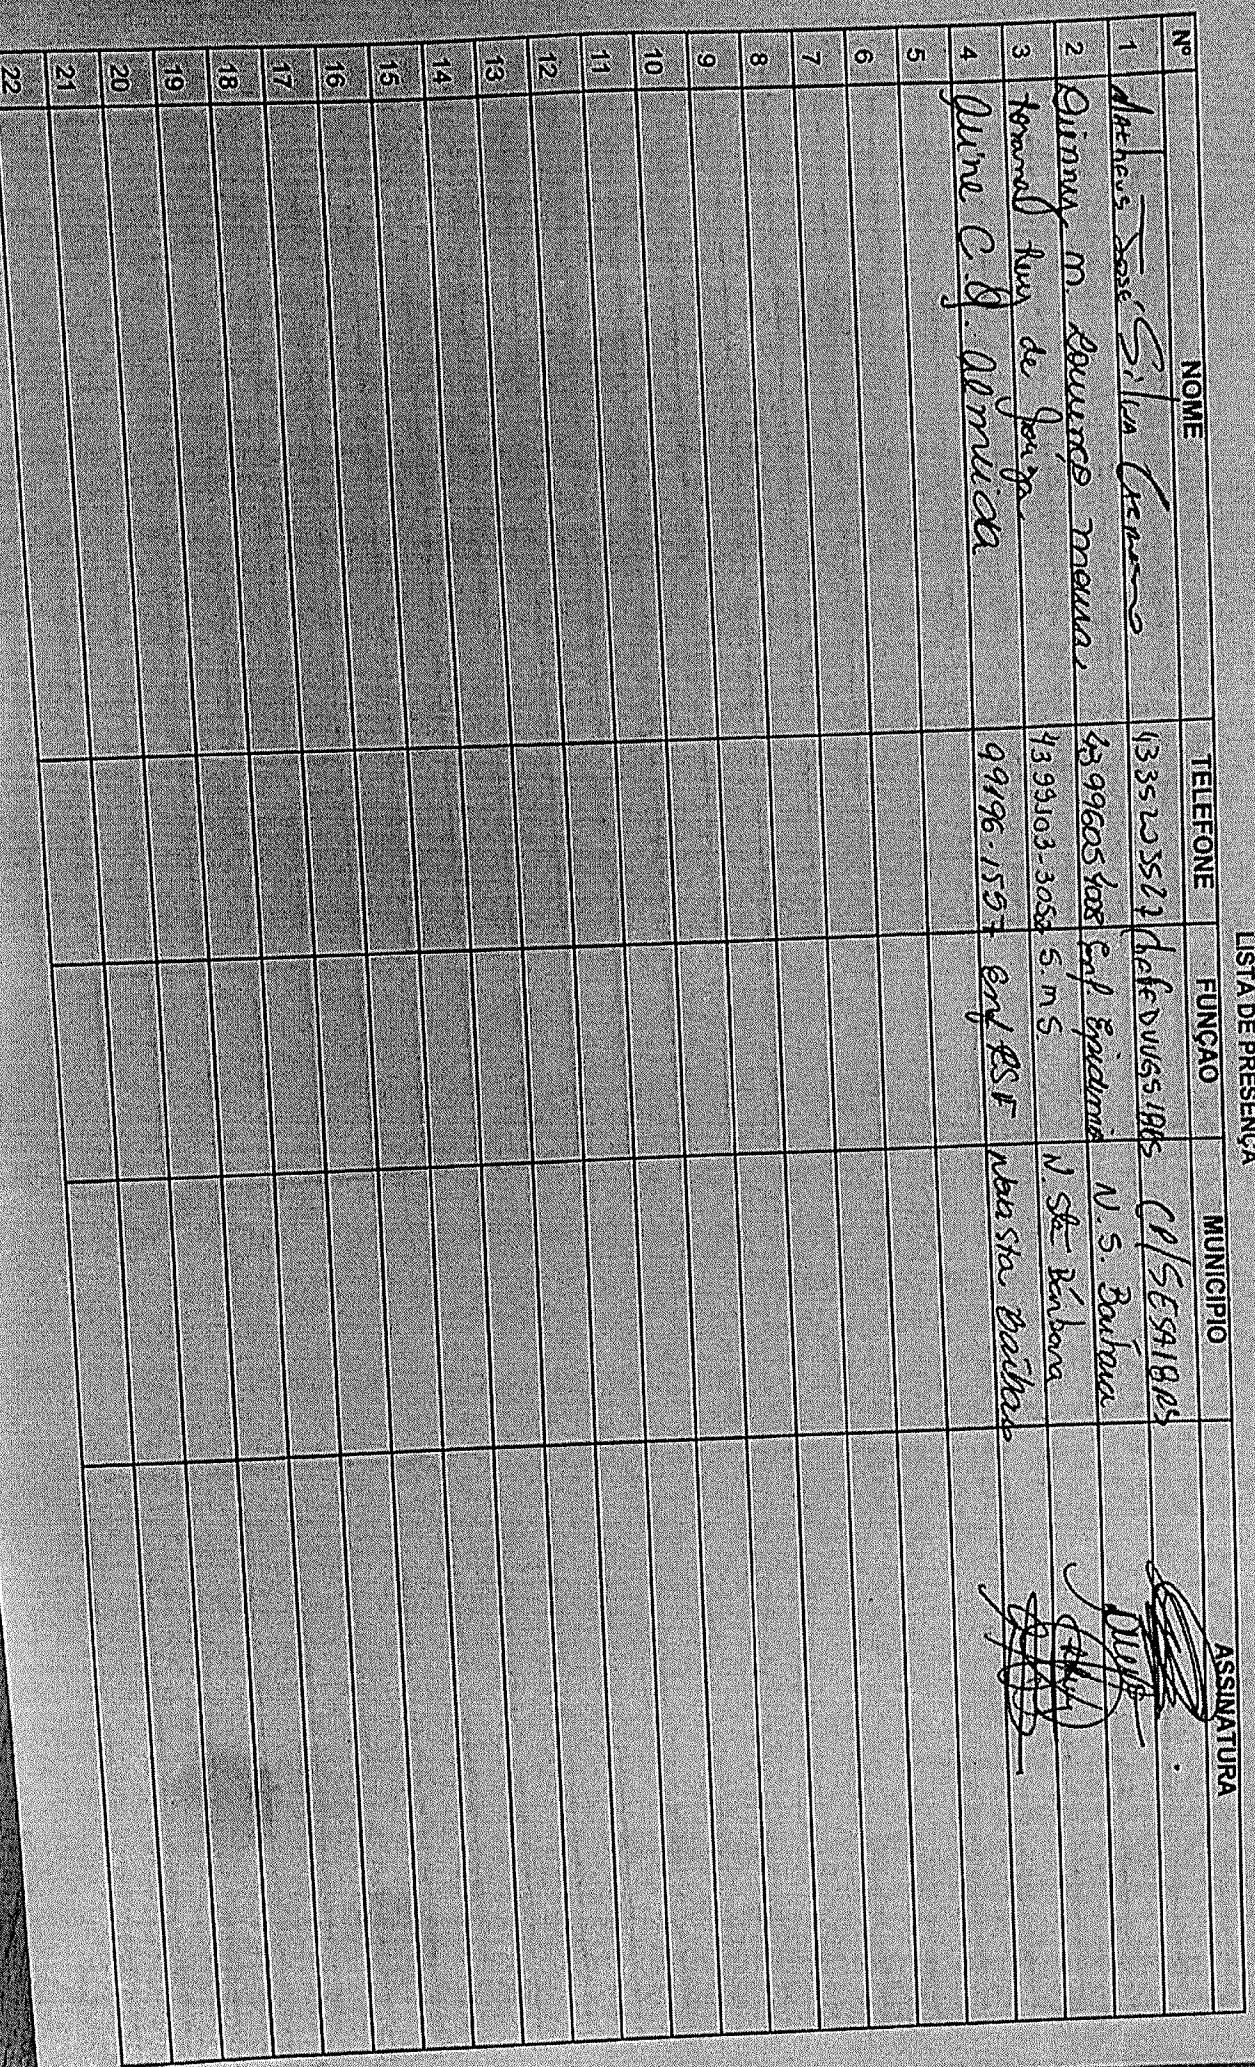 LISTA DE PRESENÇA
Nº NOME TELEFONE FUNÇAO MUNICIPIO ASSINATURA
1 Matheus José Silva 4335203527 Chefe DVVGS 18RS CP/SESA18RS
2 M. Lourenço Moura 43996054008 Enf. Epidimio N. S. Bárbara
3 Ruy de Souza 4399103-3050 S.M.S. N. Sta Bárbara
4 C. Q. Almeida 99196-1557 Enf ESF Nova Sta Bárbara
5
6
7
8
9
10
11
12
13
14
15
16
17
18
19
20
21
22